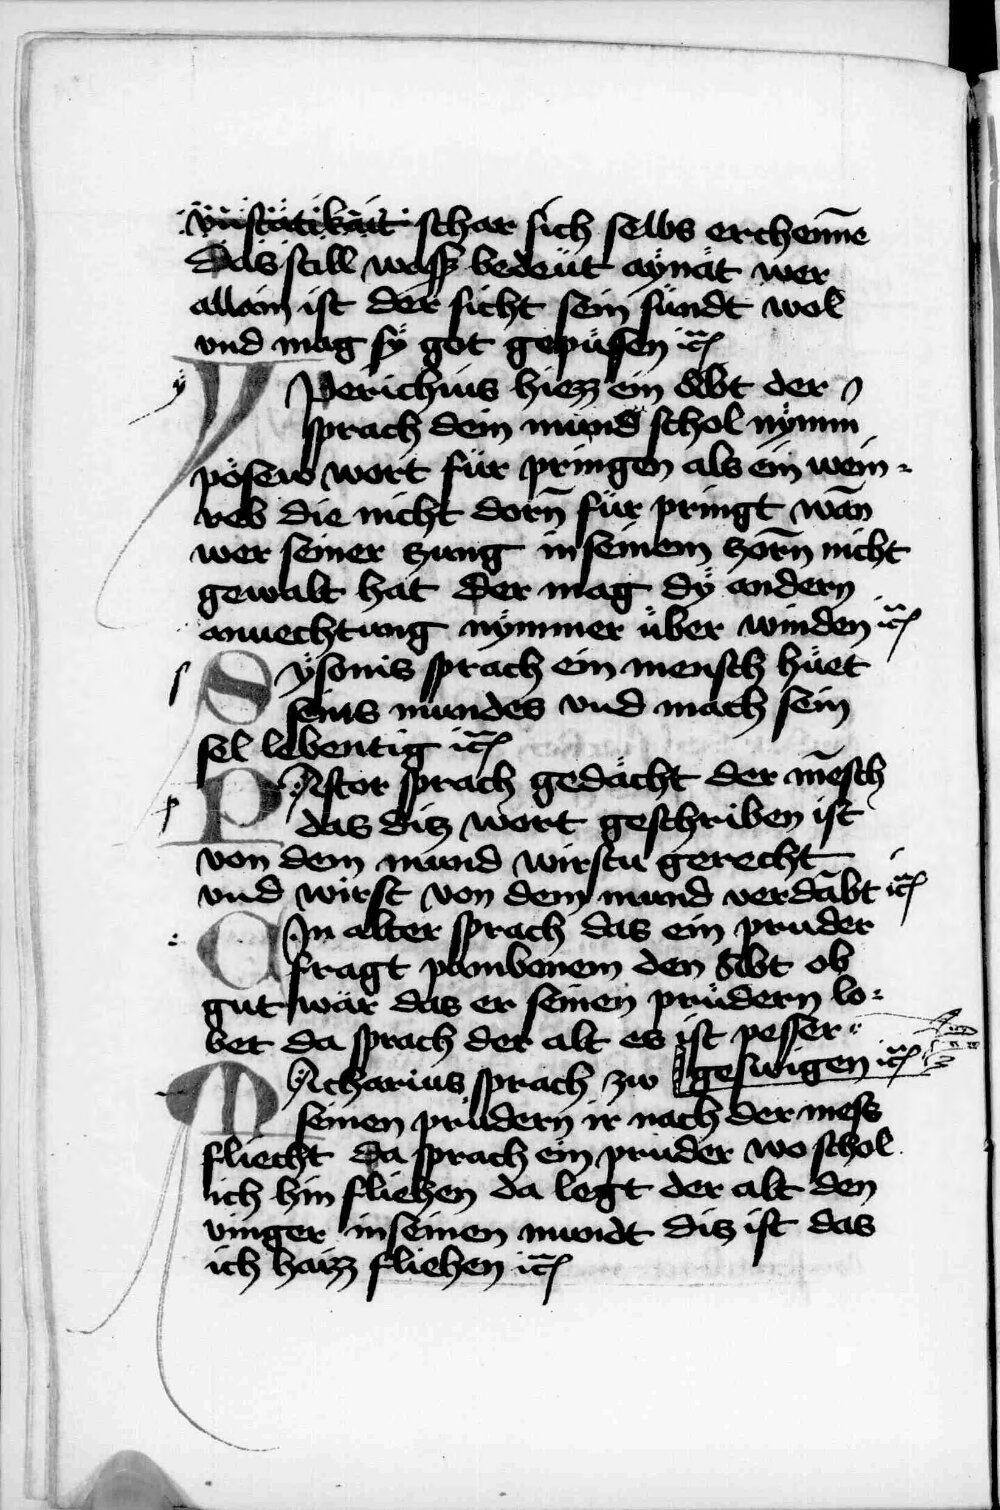 vnstätikait schar sich selbs erchenn̄e
Das still wasß bedeüt aynät wer
allain ist der sicht sein sündt wol
vnd mag sÿ got gepüssen ⁊c̄
YPerichius hiezz ein abbt der
sprach dein mund schol nÿmm
pösew wort für pringen als ein wein⸗
reb die nicht dorn̄ für pringt wān
wer seiner zung in seinem zorn̄ nicht
gewalt hat der mag dÿ andern
anuechtung nÿmmer über winden ⁊c̄
Sÿsonis sprach ein mensch hüet
seins mundes vnd mach sein
sel lebentig ⁊c̄
PAstor sprach gedächt der mēsch
das ditz wort geschriben ist
von dem mund wirstu gerecht
vnd wirst von dem mund verdābt ⁊c̄
EIn alter sprach das ein pruder
fragt pambonem den abbt ob
gut wär das er seinen prüdern lo⸗
bet da sprach der alt es ist pesser
geswigen ⁊c̄
MAcharius sprach zw
seinen prüdern ir nach der mess
fliecht da sprach ein pruder wo schol
ich hin fliehen da legt der alt den
vinger in seinen mundt ditz ist das
ich haizz fliehen ⁊c̄